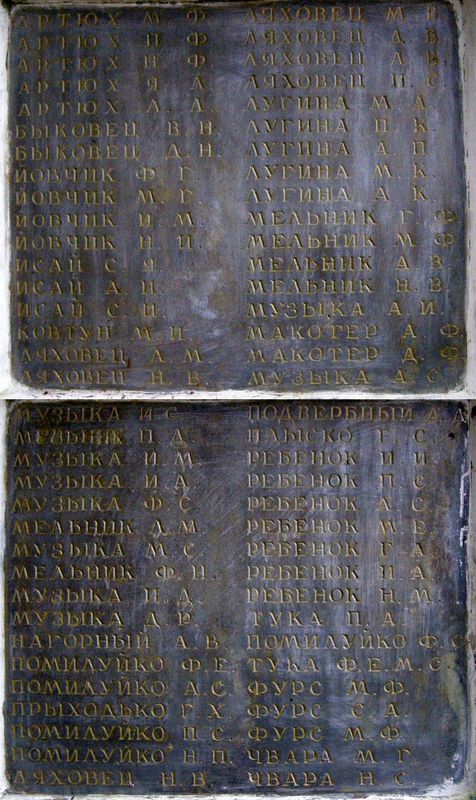 АРТЮХ М. Ф. ЛЯХОВЕЦ М. В.
АРТЮХ П. Ф. ЛЯХОВЕЦ Д. В.
АРТЮХ Н. Ф. ЛЯХОВЕЦ А. В.
АРТЮХ Я. Л. ЛЯХОВЕЦ П. С.
АРТЮХ Л. Л. ЛУГИНА М. А.
БЫКОВЕЦ В. Н. ЛУГИНА П. К.
БЫКОВЕЦ Д. Н. ЛУГИНА А. П.
ЙОВЧИК Ф. Г. ЛУГИНА М. К.
ЙОВЧИК М. Г. ЛУГИНА А. К.
ЙОВЧИК И. М. МЕЛЬНИК Г. Ф.
ЙОВЧИК Н. И. МЕЛЬНИК М. Ф.
ИСАЙ С. Я. МЕЛЬНИК А. В.
ИСАЙ А. И. МЕЛЬНИК Н. В.
ИСАЙ С. И. МУЗЫКА А. И.
КОВТУН М. И. МАКОТЕР А. Ф.
ЛЯХОВЕЦ А. М. МАКОТЕР Д. Ф.
ЛЯХОВЕЦ Н. В. МУЗЫКА А. С.
МУЗЫКА И. С. ПОДВЕРБНЫЙ
МЕЛЬНИК П. Д. ПЛЫСКО Г. С.
МУЗЫКА И. М. РЕБЕНОК И. И.
МУЗЫКА И. Д. РЕБЕНОК П. С.
МУЗЫКА Ф. С. РЕБЕНОК А. С.
МЕЛЬНИК Л. М. РЕБЕНОК М. Е.
МУЗЫКА М. С. РЕБЕНОК Г. А.
МЕЛЬНИК Ф. Н. РЕБЕНОК И. А.
МУЗЫКА И. Д. РЕБЕНОК Н. М.
МУЗЫКА Д. Р. ТУКА П. А.
НАГОРНЫЙ А. В. ПОМИЛУЙКО Ф. С.
ПОМИЛУЙКО Ф. Е. ТУКА Ф. Е. М. С.
ПОМИЛУЙКО А. С. ФУРС М. Ф.
ПРЫХОДЬКО Г. Х. ФУРС С. А.
ПОМИЛУЙКО П. С. ФУРС М. Ф.
ПОМИЛУЙКО Н. П. ЧВАРА М. Г.
ЛЯХОВЕЦ Н. В. ЧВАРА Н. С.